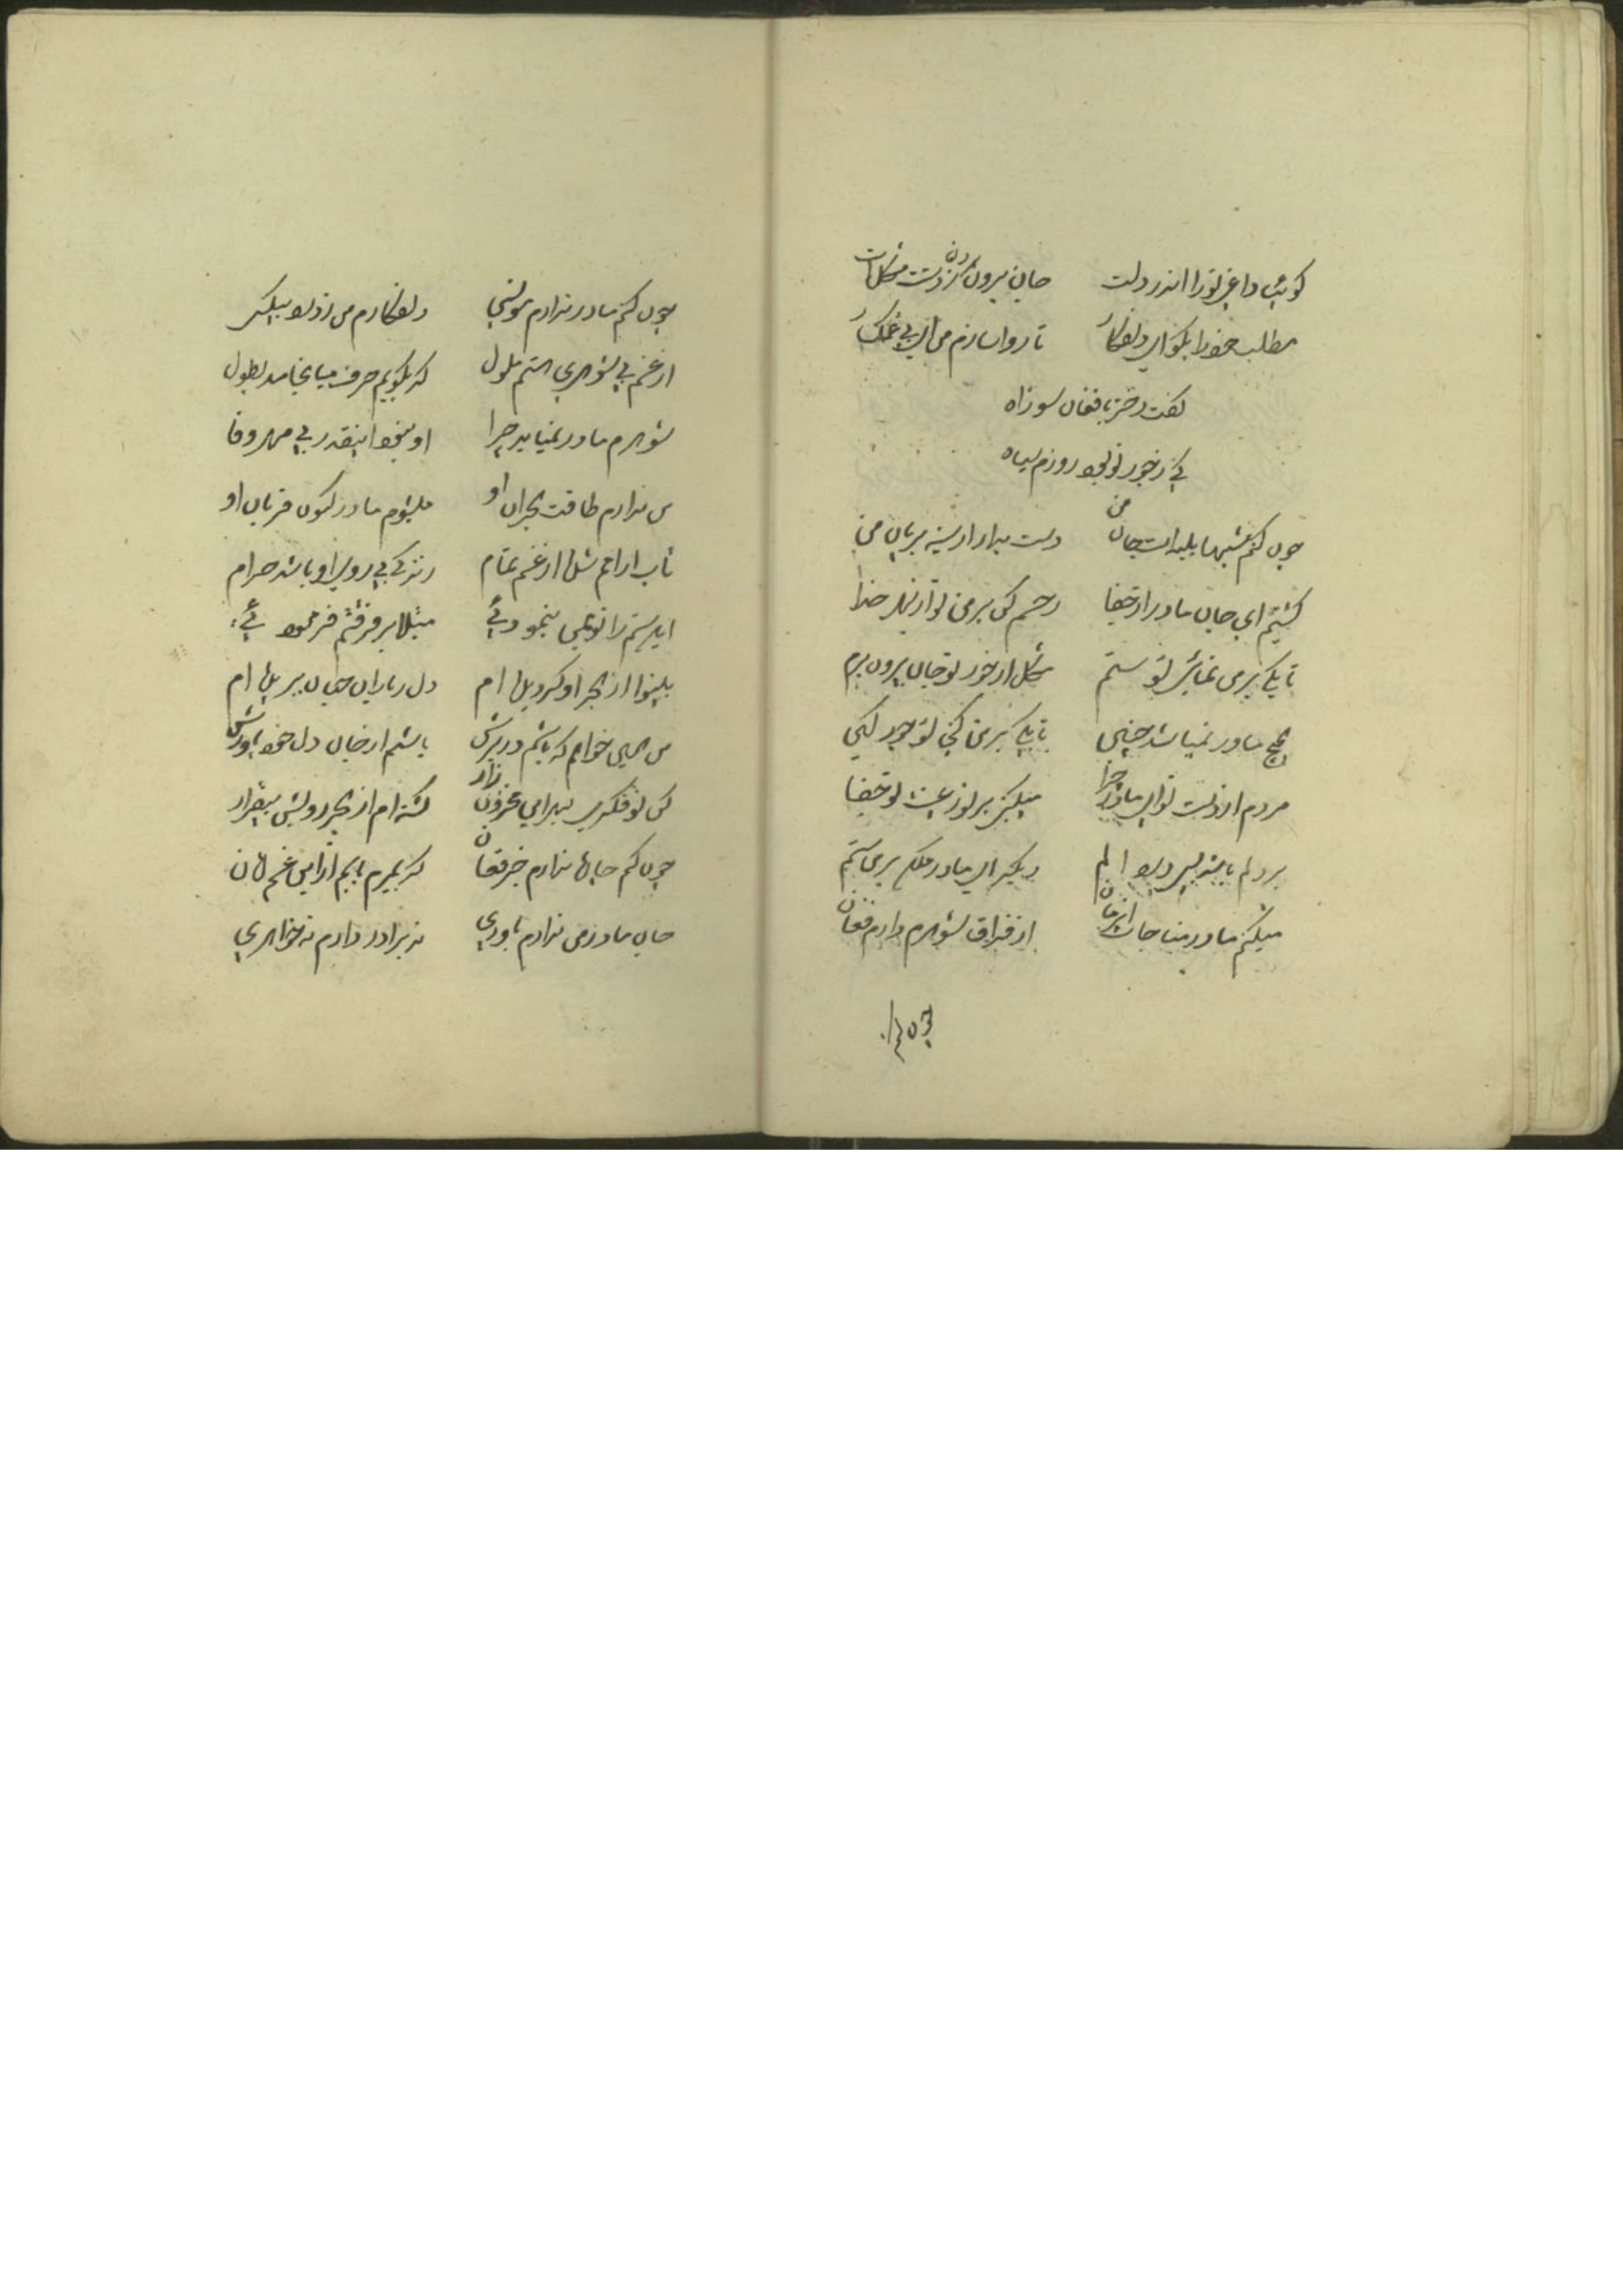 گویی داغی تو را اندر دلت جان برون کردن ز دست مشکل است
مطلب خود را بگو ای دلفکار تا روا سازم من ای بی غمگسار
گفت دختر با فغان سوز و آه
کی ز جور تو بود روزم سیاه
چون کنم شبها بلب است جان من دست بردار از سینه بریان من
کشتیم ای جان مادر از جفا رحم کن بر من تو از بهر خدا
تا بکی بر من نمائی تو ستم مشکل از جور تو جان بیرون برم
هیچ مادر نمیباشد چنین تا بکی بر من کنی تو جور
مردم از دست تو ای مادر چرا میکنی بر تو جفا
بر دلم باشد بسی درد و الم دیگر ای مادر مکن بر من ستم
میکنم مادر مناجات این زمان از فراق شوهرم دارم فغان
چون کنم
چون کنم مادر ندارم مونسی دلفکارم من ز درد بیکسی
از غم بی شوهری هستم ملول گر بگویم حرف میانجامد بطول
شوهرم مادر نمیاید چرا او بود اینقدر بی مهر و وفا
من ندارم طاقت هجران او میشوم مادر کنون قربان او
تاب آرامم شد از غم تمام زندگی بی روی او باشد حرام
این ستم را تو بمن بنمودئی مبتلا بر فرقتم فرمودئی
بینوا از هجر او گردیده ام دل ز یاران جهان ببریده ام
من همی خواهم که باشم در برش باشم از جان دل خود یاورش
کن تو فکری بهر این محزون زار گشته ام از هجر رویش بیقرار
چون کنم جانا ندارم جز فغان گر بمیرم از این غم
جان مادر من ندارم یاوری نه برادر دارم نه خواهری